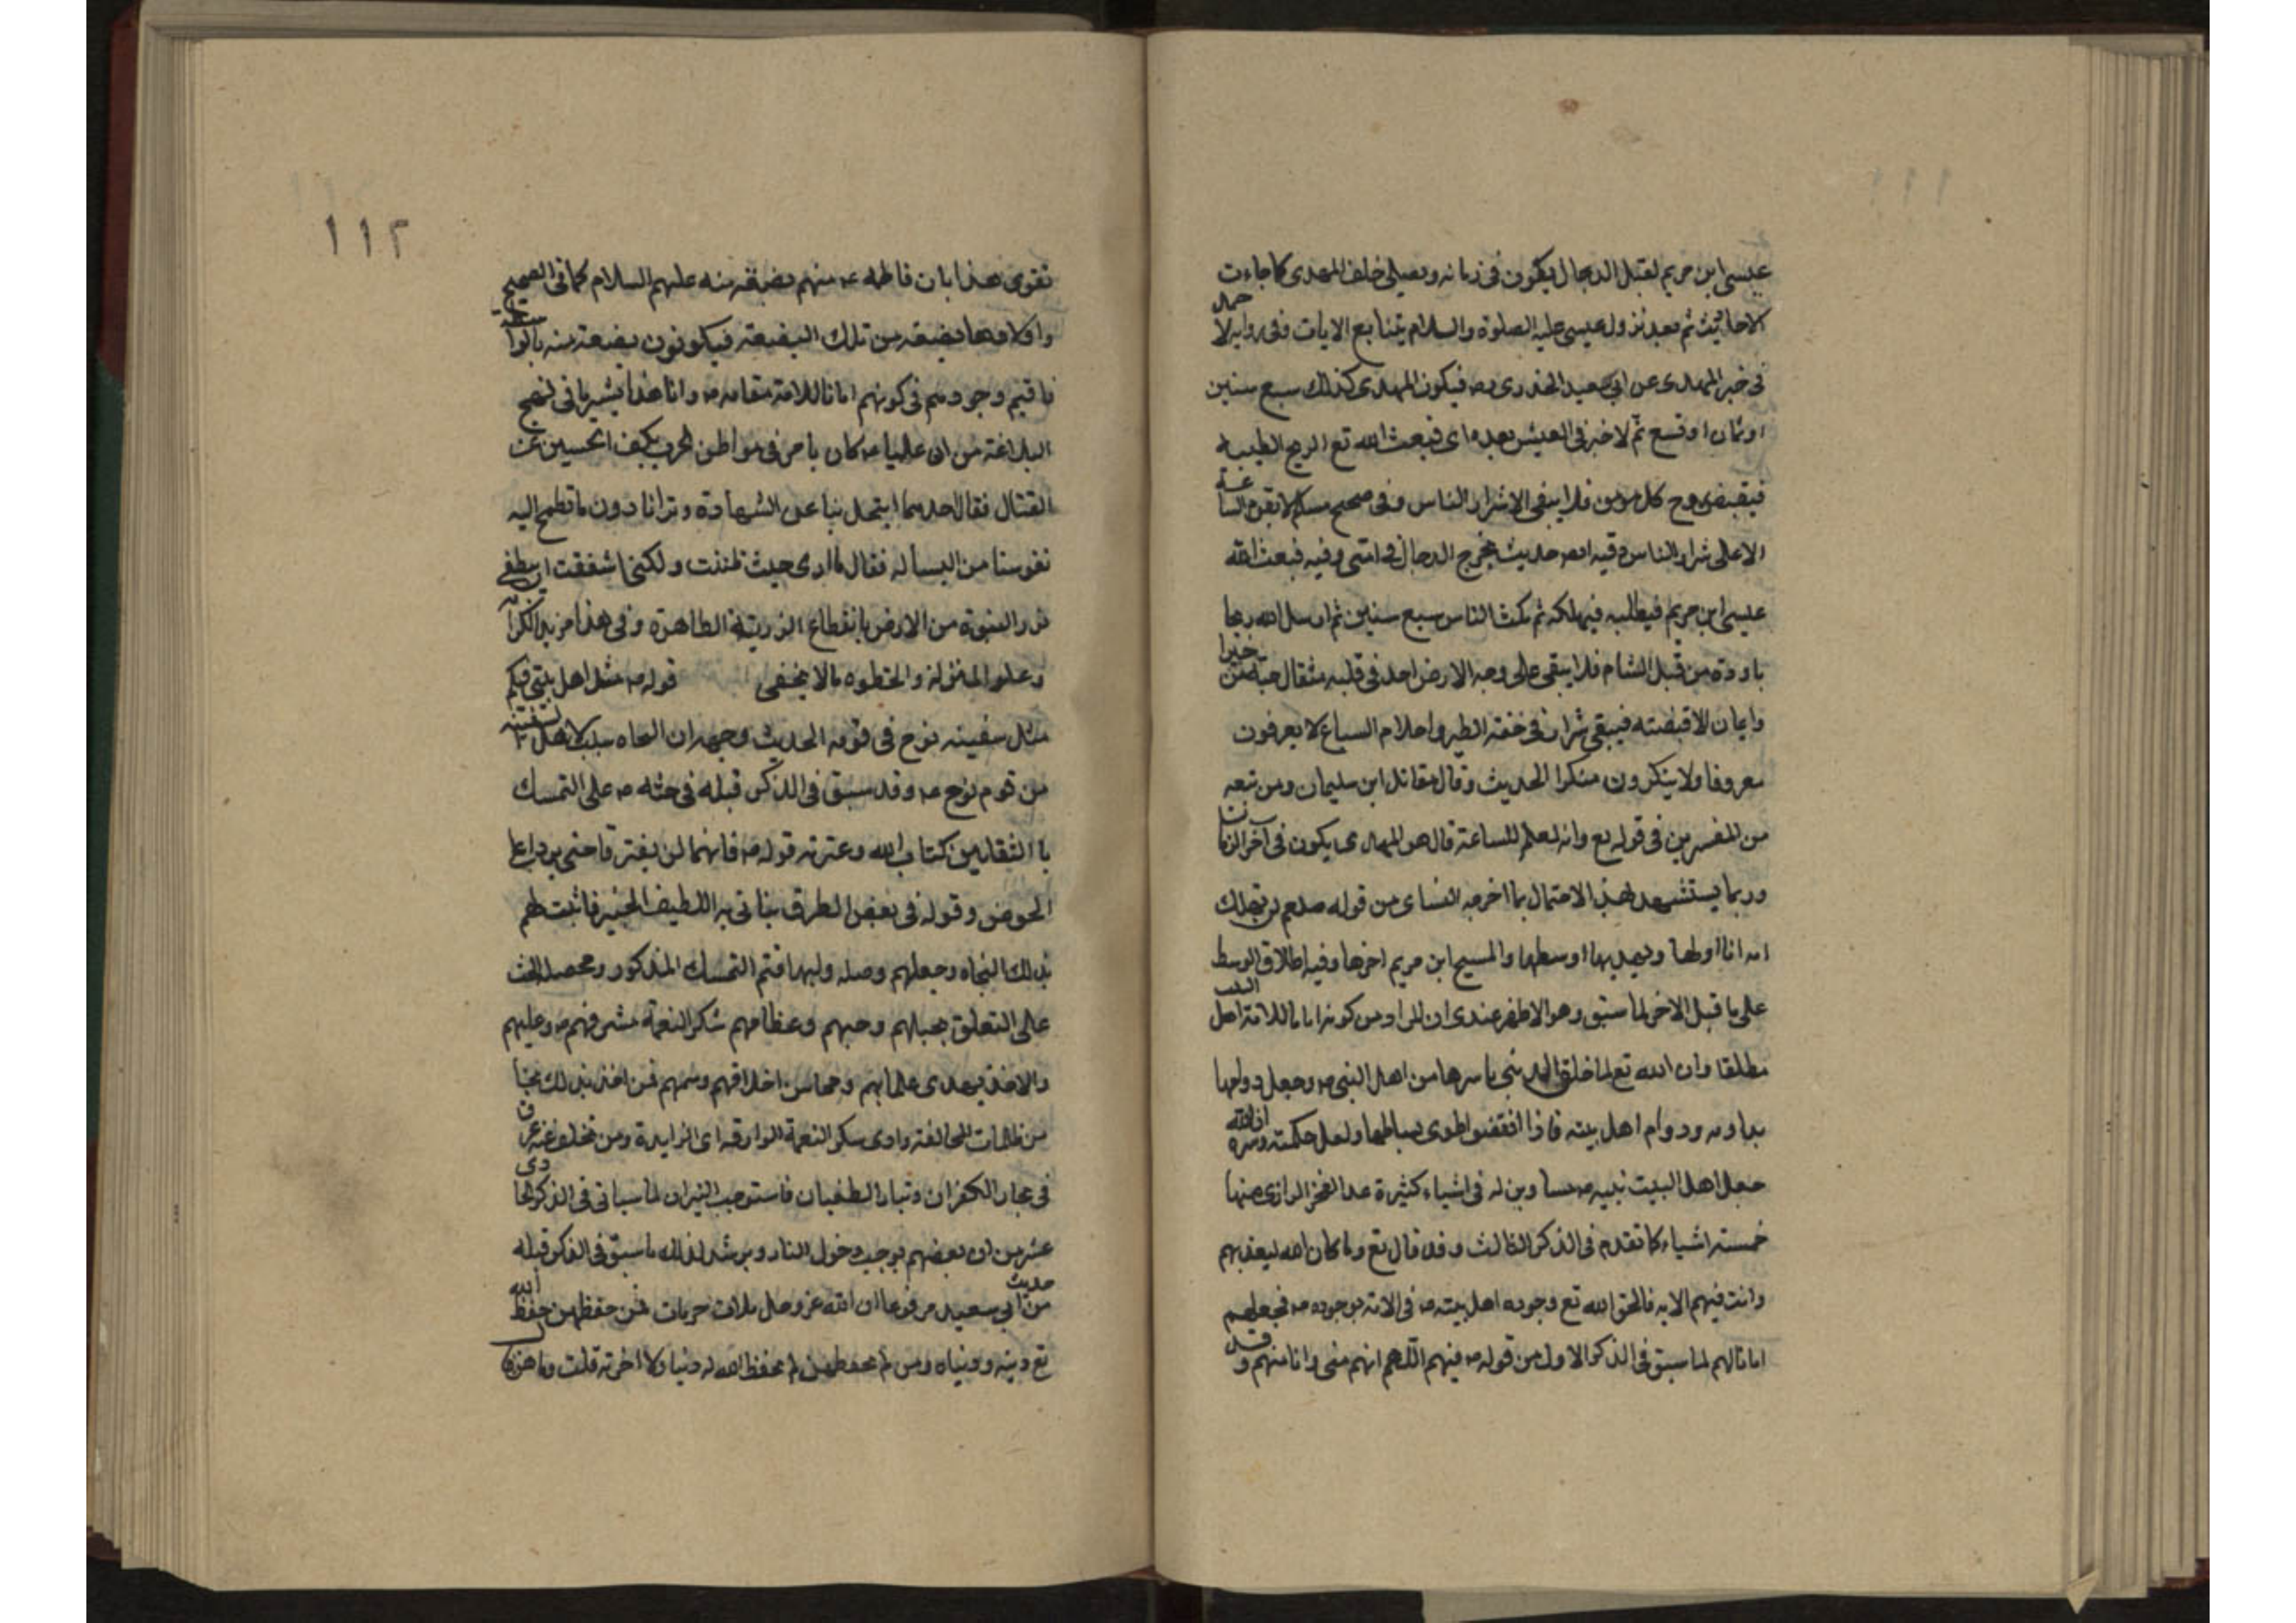 عيسى ابن مريم لقتل الدجال يكون في زمانه ويصلي خلف المهدى كما جاءت
الاحاديث ثم بعد نزول عيسى عليه الصلوة والسلام تتابع الايات وفي رواية لاحمد
في خبر المهدى عن ابي سعيد الخدرى رض فيكون المهدى كذلك سبع سنين
او ثمان او تسع ثم لا خير في العيش بعده اى فيبعث الله تع الريح الطيبه
فيقبض روح كل مومن فلا يبقى الا شرار الناس وفي صحيح مسلم لا تقوم الساعة
الا على شرار الناس وفيه ايضا حديث يخرج الدجال في امتى وفيه فبعث الله
عيسى ابن مريم فيطلبه فيهلكه ثم يمكث الناس سبع سنين ثم ارسل الله ريحا
باردة من قبل الشام فلا يبقى على وجه الارض احد في قلبه مثقال حبة من خيرا
وايمان الا قبضته فيبقى شرار في خفة الطير واحلام السباع لا يعرفون
معروفا ولا ينكرون منكرا الحديث وقال مقاتل ابن سليمان ومن تبعه
من المفسرين في قوله تع وانه لعلم للساعة قال هو المهدى يكون في آخر الزمان
وربما يستشهد لهذا الاحتمال بما اخرجه النساى من قوله صلعم لن تهلك
امه انا اولها ومهديها اوسطها والمسيح ابن مريم اخرها وفيه اطلاق الوسط
على ما قبل الاخر لما سبق وهو الاظهر عندى ان المراد من كونه امانا للامة اهل البيت
مطلقا وان الله تع لما خلق الدنيا باسرها من اهل النبي ص وجعل دوامها
بدوامه ودوام اهل بيته فاذا انقضوا طوى بساطها ولعل حكمته وسره ان الله
جعل اهل البيت نبيه ص مساوين له في اشياء كثيرة عد الفخر الرازى منها
خمسة اشياء كما تقدم في الذكر الثالث وقد قال تع وما كان الله ليعذبهم
وانت فيهم الايه فالحق الله تع وجوده اهل بيته ص في الامة بوجوده ص فجعلهم
امانا لهم لما سبق في الذكر الاول من قوله ص فيهم اللهم انهم منى وانا منهم وقد
١١٢
تقوى هذا بان فاطمه ع منهم بضعة منه عليهم السلام كما في الصحيح
واولادها بضعة من تلك البضعة فيكونون بضعة منه بالواسطة
فاقيم وجودهم في كونهم امانا للامة مقامه ص وانا هذا يشير ما في نهج
البلاغة من ان عليا ع كان يامر في مواطن الحرب بكف الحسنين عن
القتال فقال احدهما ابتخل بنا على الشهادة وترانا دون ما تطمح اليه
نفوسنا من البسالة فقال ما ارى حيث ظننت ولكنى اشفقت ان يطفى
نور النبوة من الارض بانقطاع الذرية الطاهرة وفي هذا من يد الكرامة
وعلو المنزلة والحظوه ما لا يخفى قوله ص مثل اهل بيتي فيكم
مثل سفينه نوح في قومه الحديث وجهه ان النجاه سبب لاهل السفينه
من قوم نوح ع وقد سبق في الذكر قبله في حثه ص على التمسك
با الثقلين كتاب الله وعترته قوله ص فانهما لن يفترقا حتى يردا على
الحوض وقوله في بعض الطرق نباني به اللطيف الخبير فاثبت لهم
بذلك النجاه وجعلهم وصله وليها فتم التمسك المذكور ومحصله الحث
على التعلق بحبلهم وحبهم وعظامهم شكر النعمة مشرفهم ص وعليهم
والاخذ بهدى علمايهم ومحاسن اخلاقهم وسمتهم فمن اخذ بذلك نجا
من ظلمات المخالفة وادى شكر النعمة الوارقه اى الزايدة ومن تخلف عنه غرق
في بحار الكفران وتيار الطغيان فاستوجب النيران لما سياتى في الذكر الحادى
عشر من ان بغضهم يوجب دخول النار ويرشد لذلك ما سبق في الذكر قبله
من حديث ابي سعيد مرفوعا ان الله عز وجل ثلاث حرمات فمن حفظهن حفظ الله
تع دينه ودنياه ومن لم يحفظهن لم يحفظ الله له دنيا ولا اخرته قلت وما هن قال